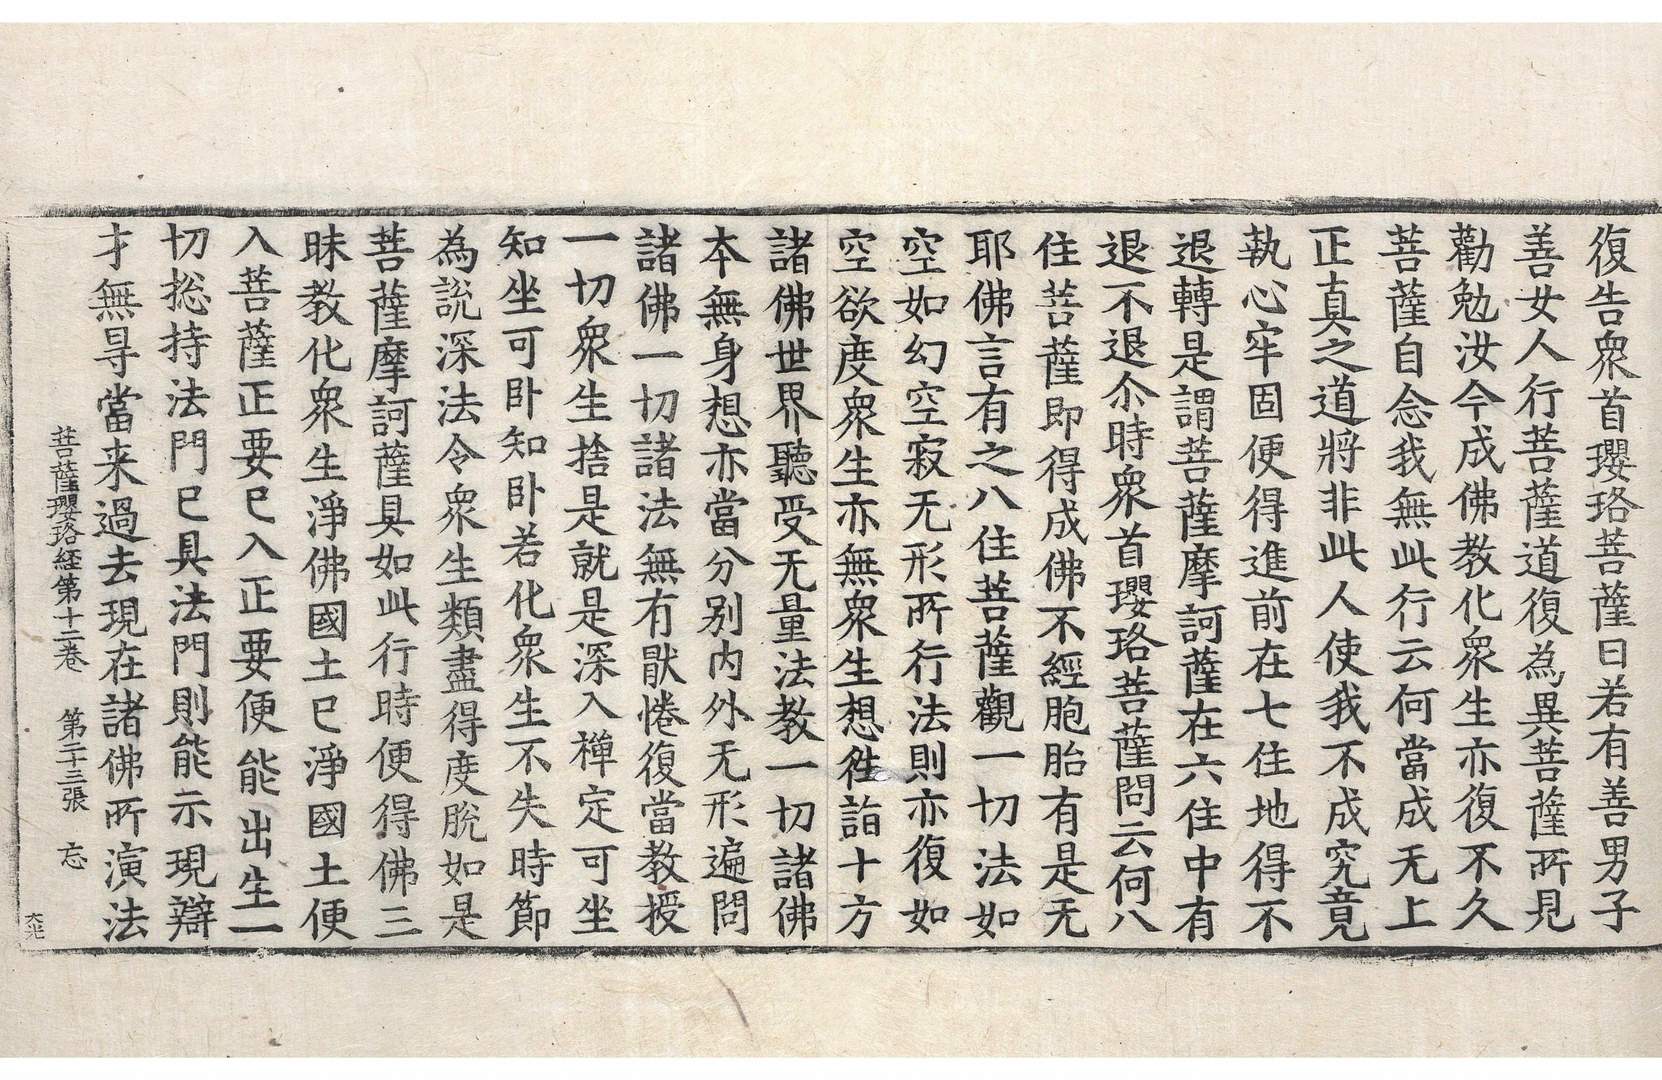 復告衆首瓔珞菩薩曰若有善男子
善女人行菩薩道復為異菩薩所見
勸勉汝今成佛教化衆生亦復不久
菩薩自念我無此行云何當成无上
正真之道將非此人使我不成究竟
執心牢固便得進前在七住地得不
退轉是謂菩薩摩訶薩在六住中有
退不退尒時衆首瓔珞菩薩問云何八
住菩薩即得成佛不經胞胎有是无
耶佛言有之八住菩薩觀一切法如
空如幻空寂无形所行法則亦復如
空欲度衆生亦無衆生想徃詣十方
諸佛世界聽受无量法教一切諸佛
本無身想亦當分别内外无形遍問
諸佛一切諸法無有猒惓復當教授
一切衆生捨是就是深入禪定可坐
知坐可卧知卧若化衆生不失時節
為說深法令衆生類盡得度脫如是
菩薩摩訶薩具如此行時便得佛三
昧教化衆生淨佛國土已淨國土便
入菩薩正要已入正要便能出生一
切捴持法門已具法門則能示現辯
才無㝵當来過去現在諸佛所演法
菩薩瓔珞經第十二卷 第二十三張 忘
大光